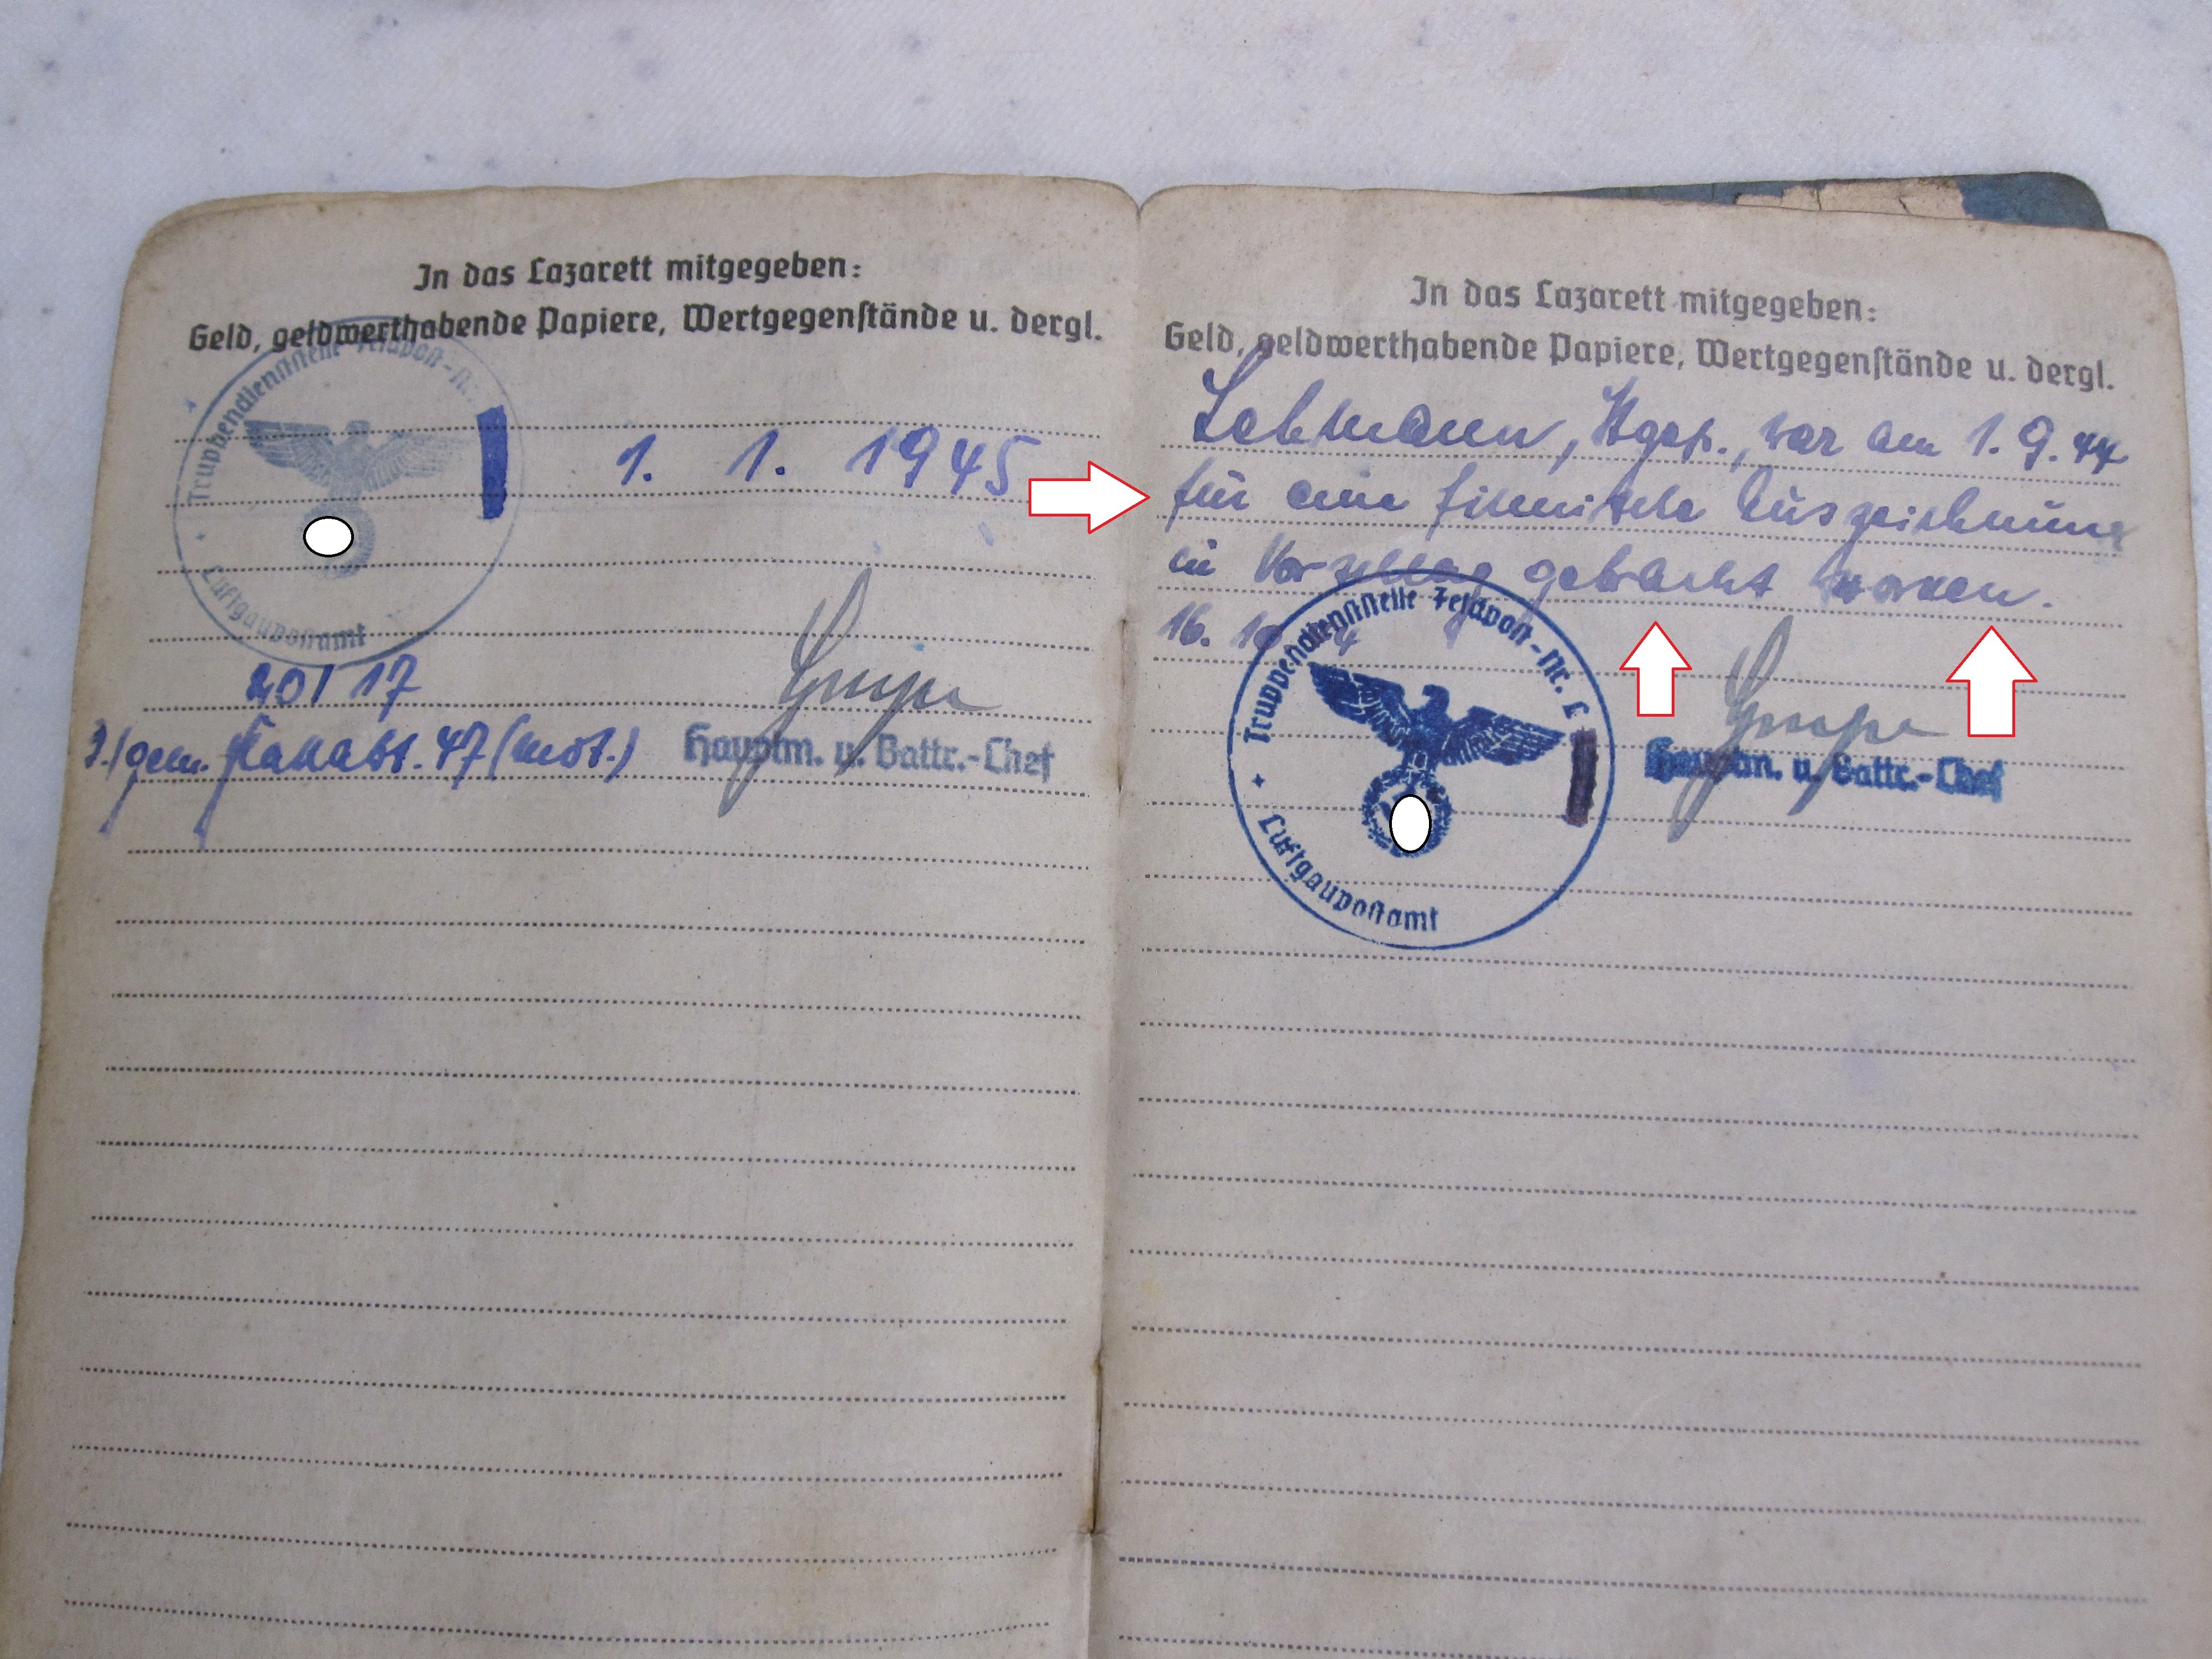 In das Lazarett mitgegeben:
Geld, geldwerthabende Papiere, Wertgegenstände u. dergl.
Truppendienststelle Feldpost-Nr.
Luftgaupostamt
1. 1. 1945
20I 17
3./gem. Flakabt. 47 (mot.)
Hauptm. u. Battr.-Chef
In das Lazarett mitgegeben:
Geld, geldwerthabende Papiere, Wertgegenstände u. dergl.
Lehmann, war am 1. 9. 44
für eine Auszeichnung
in Vorschlag gebracht worden.
16. 10. 44
Truppendienststelle Feldpost-Nr. L
Luftgaupostamt
Hauptm. u. Battr.-Chef